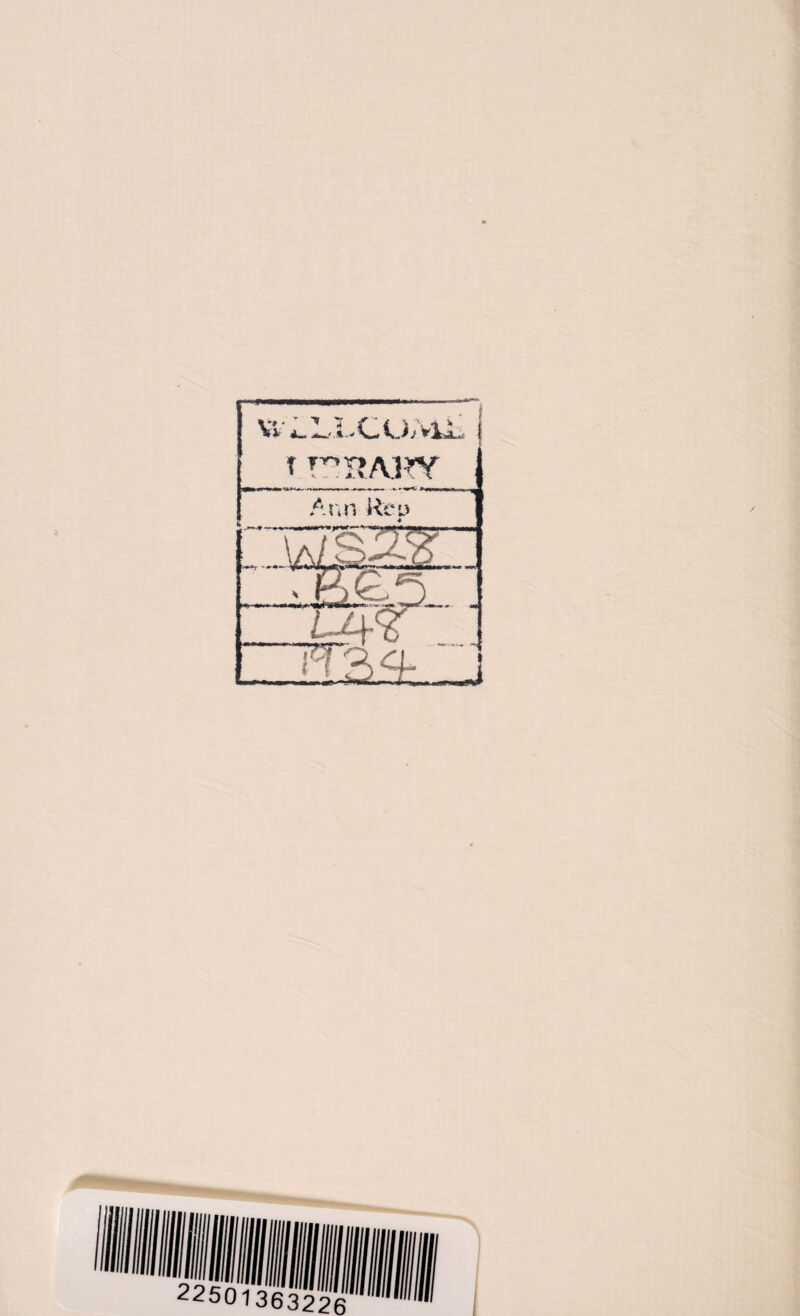 WELLCOME
LIBRARY
Ann Rep
WS28
.BE5
L48
1934
22501363226